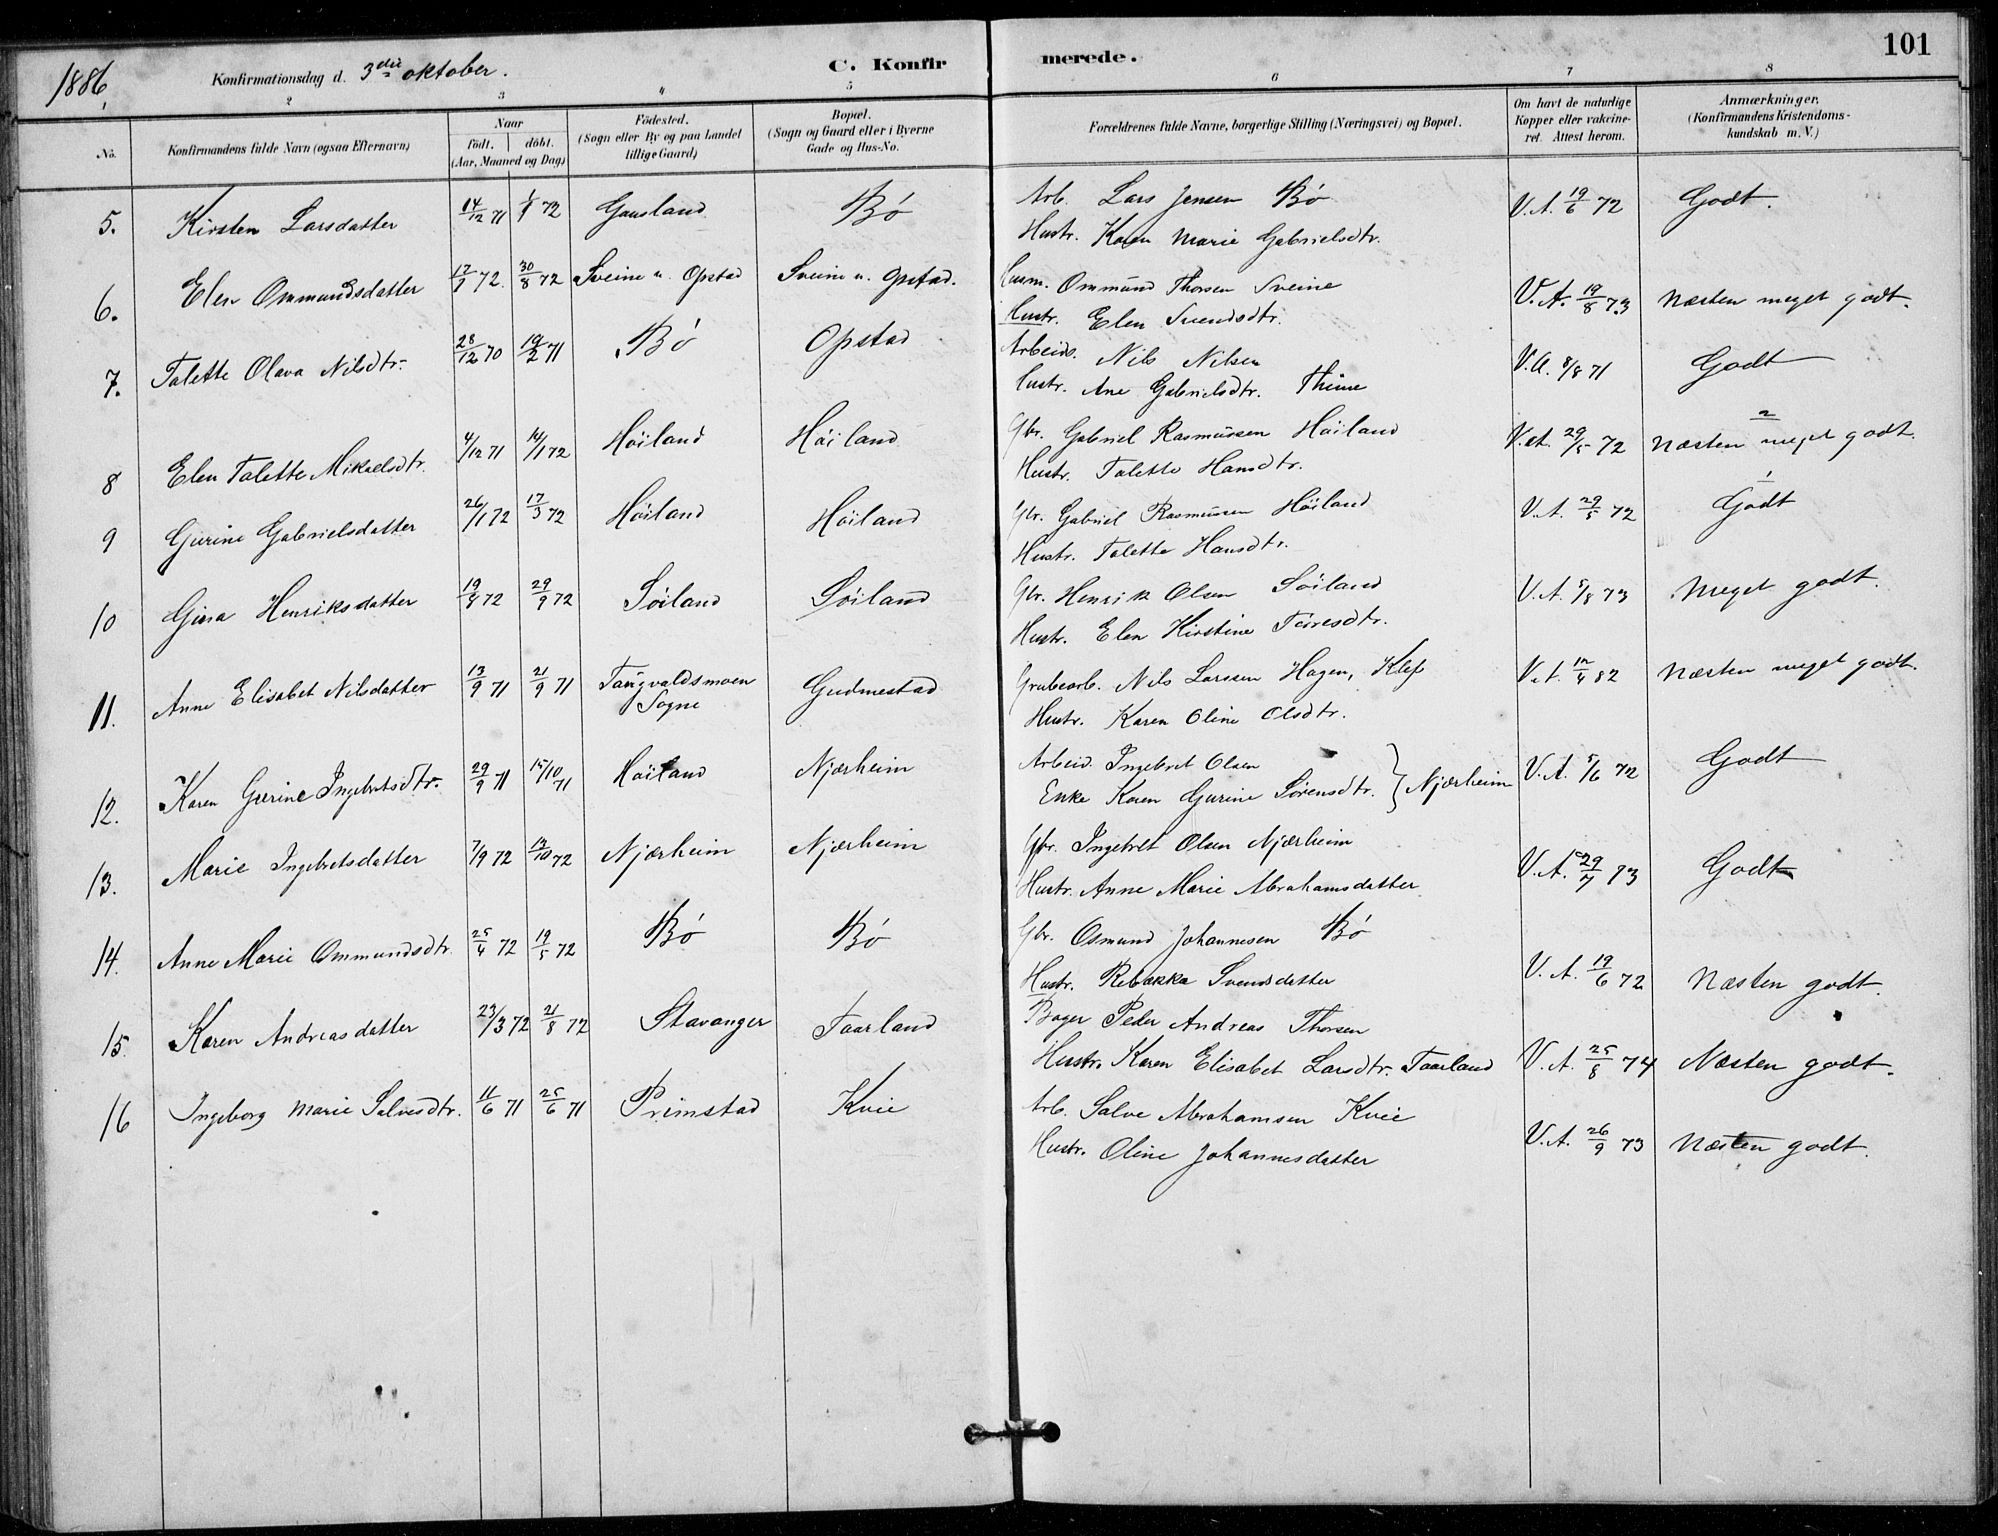 1886, Konfirmationsdag d. 3die oktober. C. Konfir merede. 101
1 2 3 4 5 6 7 8
No. Konfirmandens fulde Navn (ogsaa Efternavn) Naar födt. döbt. (Aar, Maaned og Dag) Födested. (Sogn eller By og paa Landet tillige Gaard) Bopæl. (Sogn og Gaard eller i Byerne Gade og Hus-No. Forældrenes fulde Navne, borgerlige Stilling (Næringsvei) og Bopæl. Om havt de naturlige Kopper eller vakcineret. Attest herom. Anmærkninger. (Konfirmandens Kristendomskundskab m. V.)
5. Kirsten Larsdatter 14/12 71 1/1 72 Gausland Bö Arb. Lars Jensen Bö V.A. 19/6 72 Godt.
Hustr. Karen Marie Gabrielsdtr.
6. Elen Ommundsdatter 17/7 72. 30/8 72 Sveine u. Opstad Sveine u. Opstad. Husm. Ommund Thorsen Sveine V.A. 19/8 73 Næsten meget godt.
Hustr. Elen Svendsdtr.
7. Talette Olava Nilsdtr. 28/12 70 19/2 71 Bö Opstad Arbeids. Nils Nilsen V.A. 8/8 71 Godt
Hustr. Ane Gabrielsdtr. Thime
8 Elen Talette Mikaelsdtr. 4/12 71 14/1 72 Höiland Höiland Gbr. Gabriel Rasmussen Höiland V.A. 29/5 72 2 Næsten meget godt.
Hustr. Talette Hansdtr.
9 Gurine Gabrielsdatter 26/1 72 17/3 72 Höiland Höiland Gbr. Gabriel Rasmussen Höiland V.A. 29/5 72 1 Godt
Hustr. Talette Hansdtr.
10 Gina Henriksdatter 19/8 72 29/9 72 Söiland Söiland Gbr. Henrik Olsen Söiland V.A. 5/8 73 Meget godt.
Hustr. Elen Kirstine Töresdtr.
11. Anne Elisabet Nilsdatter 13/9 71 21/9 71 Tangvaldsmoen Sogne Gudmestad Grubearb. Nils Larsen Hagen, Klep V.A. 12/4 82 Næsten meget godt.
Hustr. Karen Oline Olsdtr.
12. Karen Gurine Ingebretsdtr. 29/9 71 15/10 71 Höiland Njærheim Arbeid. Ingebret Olsen V.A. 5/6 72 Godt
Enke Karen Gurine Sörensdtr. } Njærheim
13. Marie Ingebretsdatter 7/9 72 13/10 72 Njærheim Njærheim Gbr. Ingebret Olsen Njærheim V.A. 29/7 73 Godt
Hustr. Anne Marie Abrahamsdatter
14. Anne Marie Ommundsdtr. 25/4 72 19/5 72 Bö Bö Gbr. Osmund Johannesen Bö V.A. 19/6 72 Næsten godt.
Hustr. Rebekka Svendsdatter
15. Karen Andreasdatter 23/3 72 21/8 72 Stavanger Taarland Bager Peder Andreas Thorsen
Hustr. Karen Elisabet Larsdtr. Taarland V.A. 25/8 74 Næsten godt.
16 Ingeborg Marie Salvesdtr. 11/6 71 25/6 71 Primstad Kvie Arb. Salve Abrahamsen Kvie
Hustr. Oline Johannesdatter V.A. 26/9 73 Næsten godt.